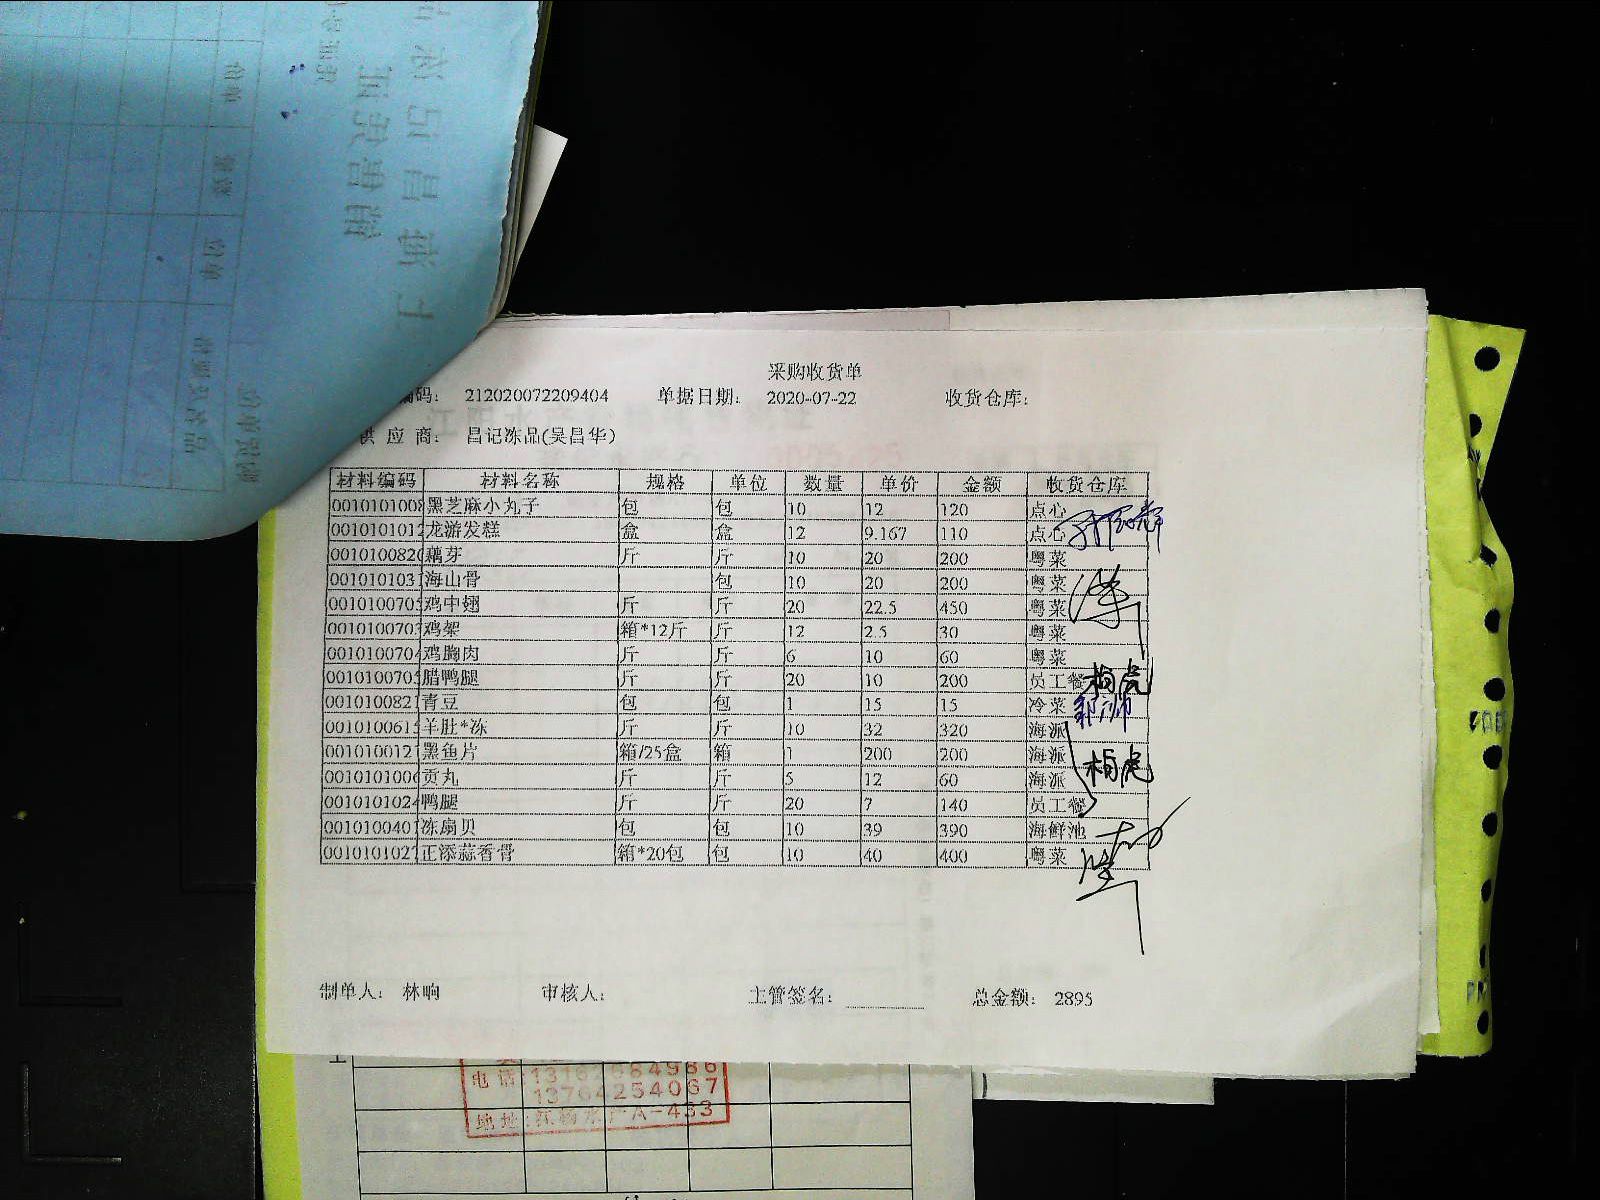 采购收货单
编码： 212020072209404 单据日期： 2020-07-22 收货仓库：
供 应 商： 昌记冻品(吴昌华)
材料编码 材料名称 规格 单位 数量 单价 金额 收货仓库
001010100 黑芝麻小丸子 包 包 10 12 120 点心
001010101 龙游发糕 盒 盒 12 9.167 110 点心
001010082 藕芽 斤 斤 10 20 200 粤菜
001010103 海山骨 包 10 20 200 粤菜
001010070 鸡中翅 斤 斤 20 22.5 450 粤菜
001010070 鸡架 箱*12斤 斤 12 2.5 30 粤菜
001010070 鸡胸肉 斤 斤 6 10 60 粤菜
001010070 腊鸭腿 斤 斤 20 10 200 员工餐
001010082 青豆 包 包 1 15 15 冷菜
001010061 羊肚*冻 斤 斤 10 32 320 海派
001010012 黑鱼片 箱/25盒 箱 1 200 200 海派
001010100 贡丸 斤 斤 5 12 60 海派
001010102 鸭腿 斤 斤 20 7 140 员工餐
001010040 冻扇贝 包 包 10 39 390 海鲜池
001010102 正添蒜香骨 箱*20包 包 10 40 400 粤菜
制单人： 林响 审核人： 主管签名： 总金额： 2895
电话
13764254067
地址: A-433